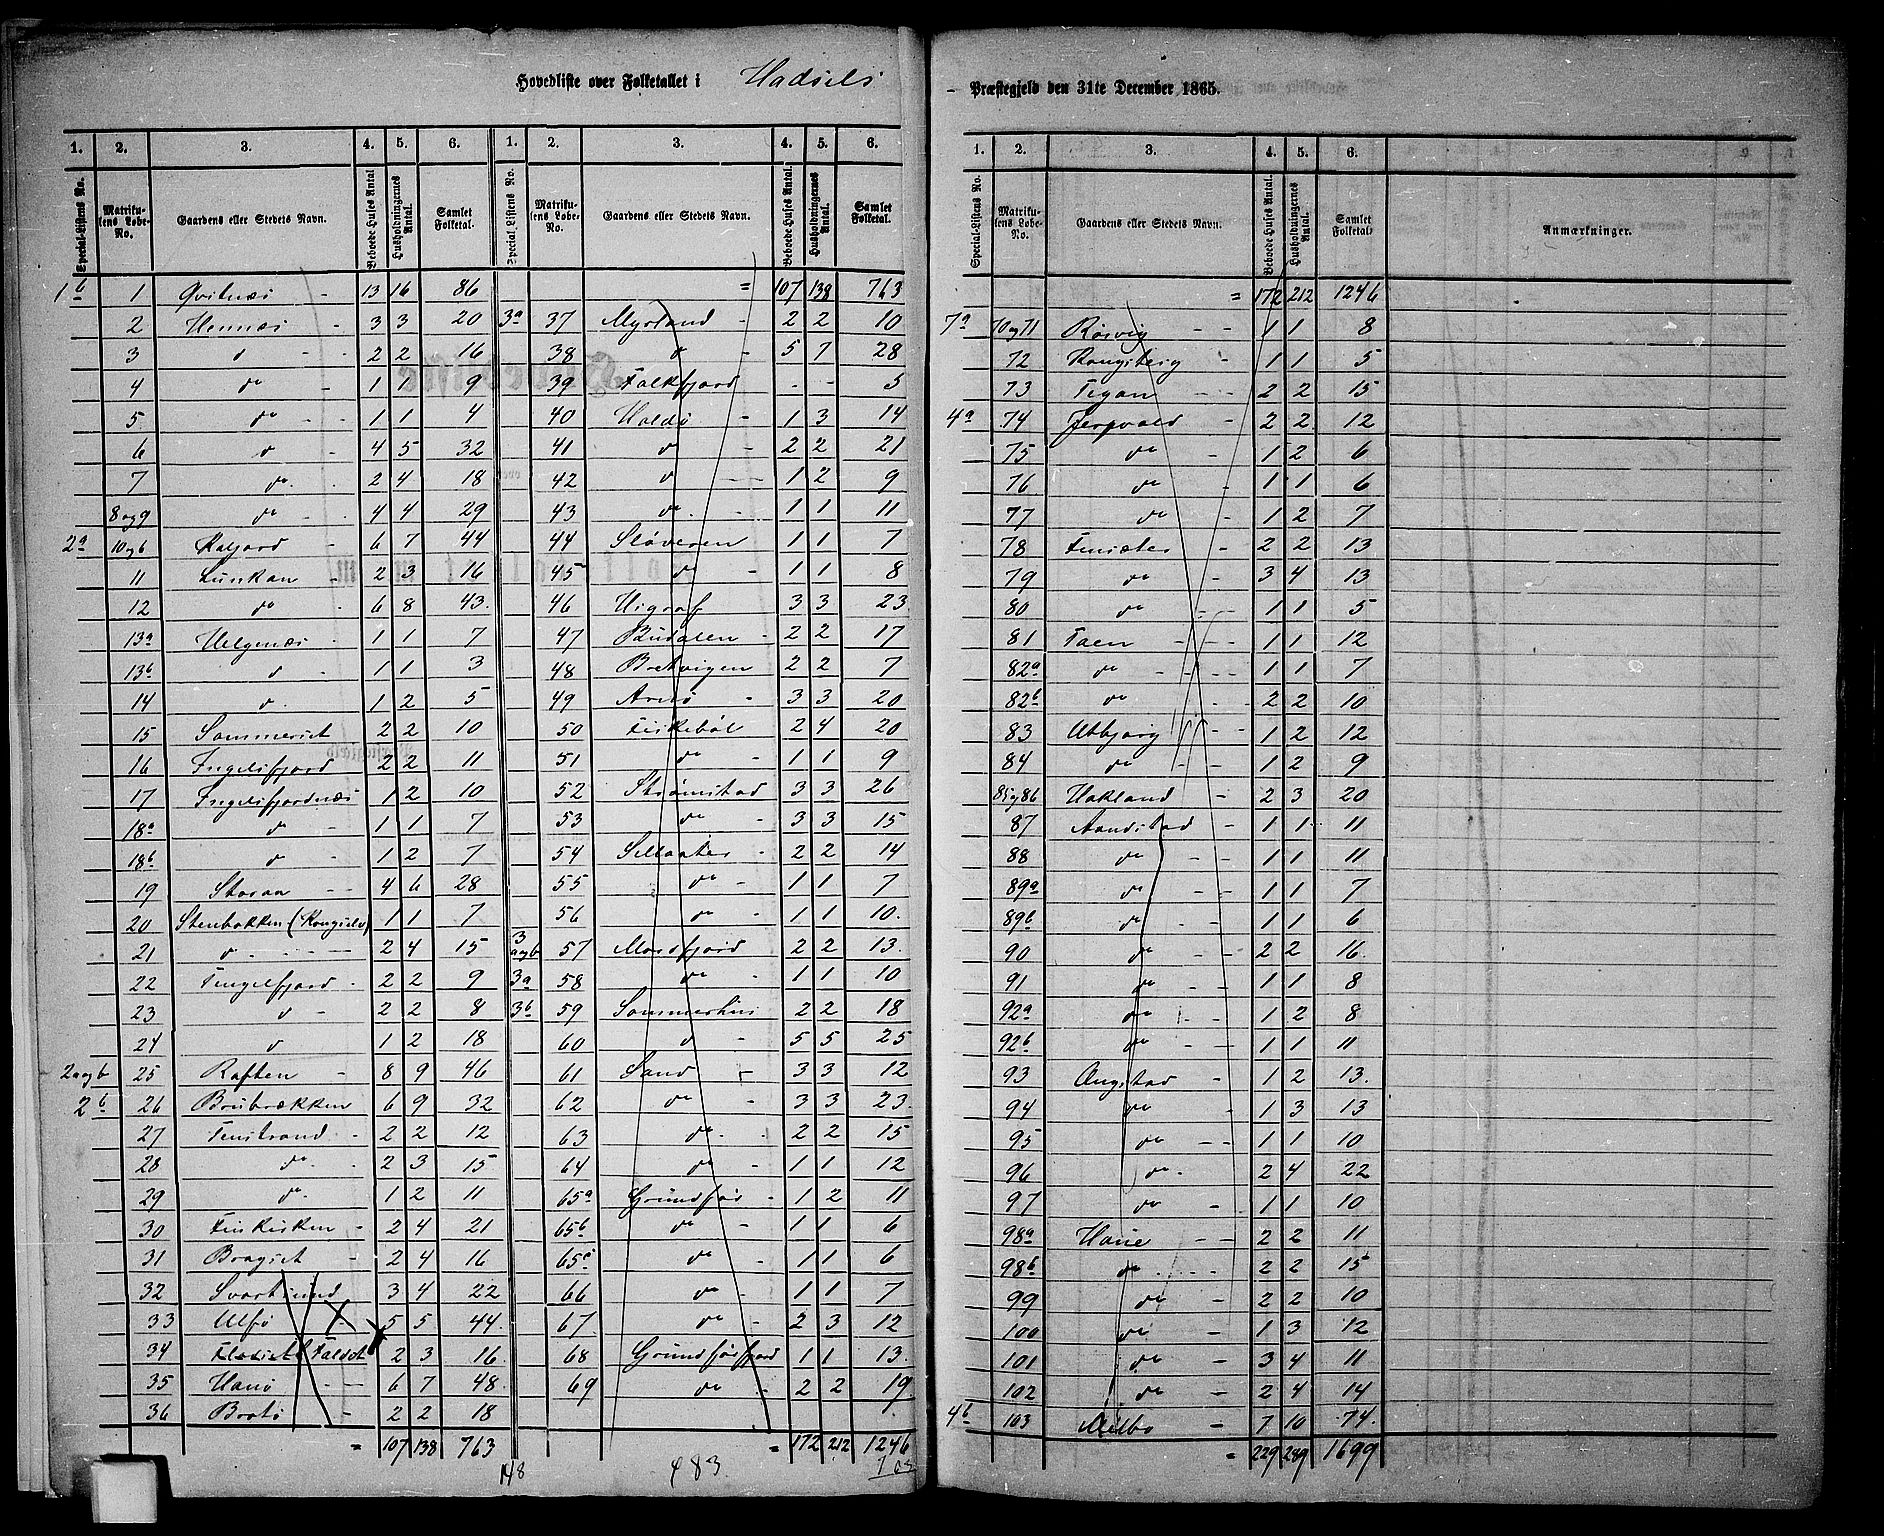 Hovedliste over Folketallet i Hadsels
Præstegjeld den 31te December 1865.
1. 2. 3. 4. 5. 6. 1. 2. 3. 4. 5. 6.
Special-Listens No. Matrikulens Løbe-No. Gaardens eller Stedets Navn. Beboede Huses Antal Husholdningernes Antal. Samlet Folketal. Special Listens No. Matrikulens Løbe-No. Gaardens eller Stedets Navn. Beboede Huses Antal. Husholdningernes Antal. Samlet Folketal.
1b 1 Qvitnæs - 13 16 86
2 Hennæs - 3 3 20
3 d - - 2 2 16
4 do - 1 1 9
5 do - 1 1 4
6 d - 4 5 32
7 do. - 2 4 18
8 og 9 do - - 4 4 29
2a 10 og b Kaljord - 6 7 44
11 Lunkan - 2 3 16
12 do - 6 8 43.
13a Helgenæs - 1 1 7
13b d - 1 1 3
14 d. - 1 2 5
15 Sommerset 2 2 10
16 Ingelsfjord 2 2 11
17 Ingelsfjordnæs 1 2 10
18a d - 1 1 7
18b d - 1 2 7
19 Storaa - - 4 6 28
20 Stenbakken (Kongselv) 1 1 7
21 d - - - - 2 4 15
22 Tengelfjord - 2 2 9
23 d - 2 2 8
24 d 1 2 18
2a og b 25 Raften - 8 9 46
2b 26 Brubrækken 6 9 32
27 Finstrand - 2 2 12
28 do. - 2 3 15
29 do. 1 2 11
30 Finkisken - 2 4 21
31 Brogset - 2 4 16
32 Svartsund 3 4 22
33 Ulfø 5 5 44.
34 Faldet 2 3 16.
35 Hanø - - 6 7 48.
36 Brotø - 2 2 18
= 107 138 763
= 107 138 763
3a 37 Myrland - 2 2 10
38 do - 5 7 28
39 Falkfjord - - 5
40 Holdø - 1 3 14
41 d - 2 2 21
42 d - - 1 2 9
43 do. - 1 1 11
44 Sløveren 1 1 7
45 do - 1 1 8
46 Higraf 3 3 23
47 Budalen - 2 2 17
48 Bretvigen 2 2 7
49 Arnø - 3 3 20
50 Fiskebøl 2 4 20
51 do - 1 1 9
52 Strømstad 3 3 26
53 do - 3 3 15
54 Sellaater - 2 2 14
55 do - 1 1 7
56 do - 1 1 10.
3 a og b 57 Morfjord 2 2 13.
3a 58 do - 1 1 10
3b 59 Sommerhus 2 2 18
60 d - 5 5 25
61 Sand - 3 3 12
62 do - 3 3 23.
63 do. - 2 2 15
64 do - 1 1 12
65a Grundfør - 1 2 11
65b do - 1 1 6
65c do 1 1 6
66 do - 1 1 7
67 do - 2 3 12
68 Grundførfjord 1 1 13.
69 do - 2 2 19
= 172 212 1246
148 483.
1. 2. 3. 4. 5. 6.
Special-Listens No. Matrikulens Løbe-No. Gaardens eller Stedets Navn. Beboede Huses Antal. Husholdningernes Antal. Samlet Folketal. Anmærkninger.
= 172 212 1246
7a 70 og 71 Røsvig - - 1 1 8
72 Kongsberg - 1 1 5
73 Tegan - - 2 2 15
4a 74 Jerpvold - 2 2 12
75 do - 1 2 6
76 do - 1 1 6
77 do - 1 2 7
78 Finsæter - 2 2 13
79 do - 3 4 13
80 do - - 1 1 5
81 Taen - - - 1 1 12
82a do - - - 1 1 7
82b do - - 2 2 10
83 Utbjørg - - 1 2 12
84 do - - 1 2 9
85 og 86 Hokland - 2 3 20
87 Aandstad - 1 1 11
88 do - - 1 1 11
89a do - - 1 1 7
89b do - - 1 1 6
90 do - - 2 2 16.
91 do - - 1 1 8
92a do - - 1 2 8
92b do - - 1 1 11
93 Ongstad - 1 2 13.
94 do - - 1 3 13
95 do - - 1 1 10
96 do - 2 4 22
97 do - 1 1 10
98a Haue - - 2 2 11
98b do - - - 2 2 15
99 do - - 2 2 10
100 do - 1 3 12
101 do - 3 4 11
102 do - 2 4 14
4b 103 Melbo - 7 10 74.
= 229 289 1699